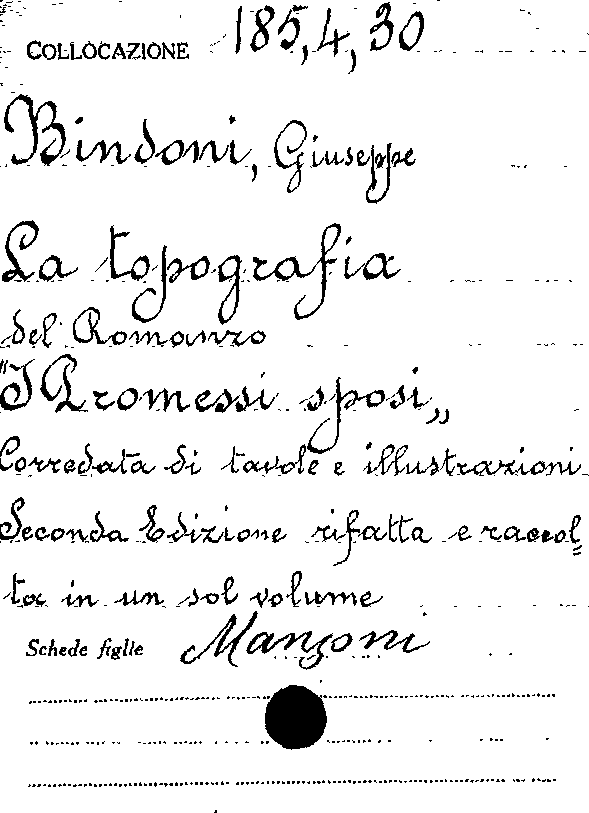 COLLOCAZIONE 185,4,30
Bindoni, Giuseppe
La topografia
del Romanzo
"I Promessi sposi„
Corredata di tavole e illustrazioni
Seconda Edizione rifatta e raccol=
ta in un sol volume
Schede figlie Manzoni